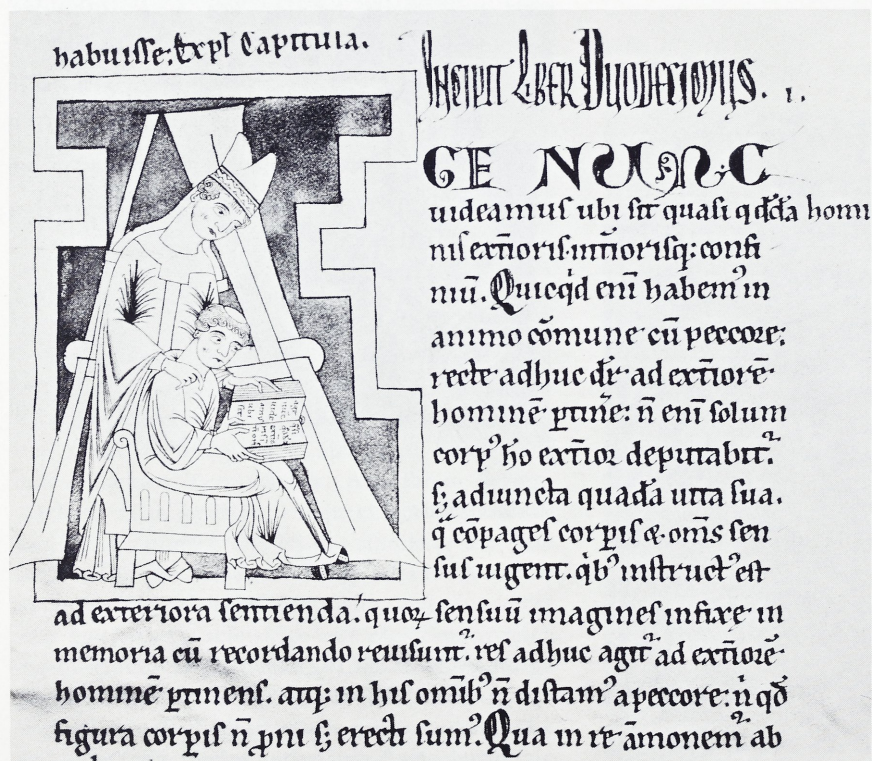 habuisse: Expl̄ Capitula.
INCIPIT LIBER DUODECIMUS. I.
GE NUNC
uideamus ubi sit quasi qdd̄a homi
nis ext̄ioris int̄iorisq: confi
niū. Quicq̇d enī habem᾽ in
animo cōmune cū peccore:
recte adhuc dr̄ ad ext̄iorē
hominē ptinē: n̄ enī solum
corp᾽ ho ext̄ior deputabit᷑.
sꝫ adiuncta quad̄a uita sua.
q̄ cōpages corpis & om̄s sen
sus uigent. q̇b᾽ instruct᾽ est
ad exteriora sentienda. quoꝝ sensuū imagines infixe in
memoria cū recordando reuisunt᷑. res adhuc agit᷑ ad ext̄iorē
hominē ꝑtinens. atq: in his omīb᾽ n̄ distam᾽ a peccore: n̄ qđ
figura corꝑis n̄ ꝓni sꝫ erecti sum᾽. Qua in re āmonem᷑ ab